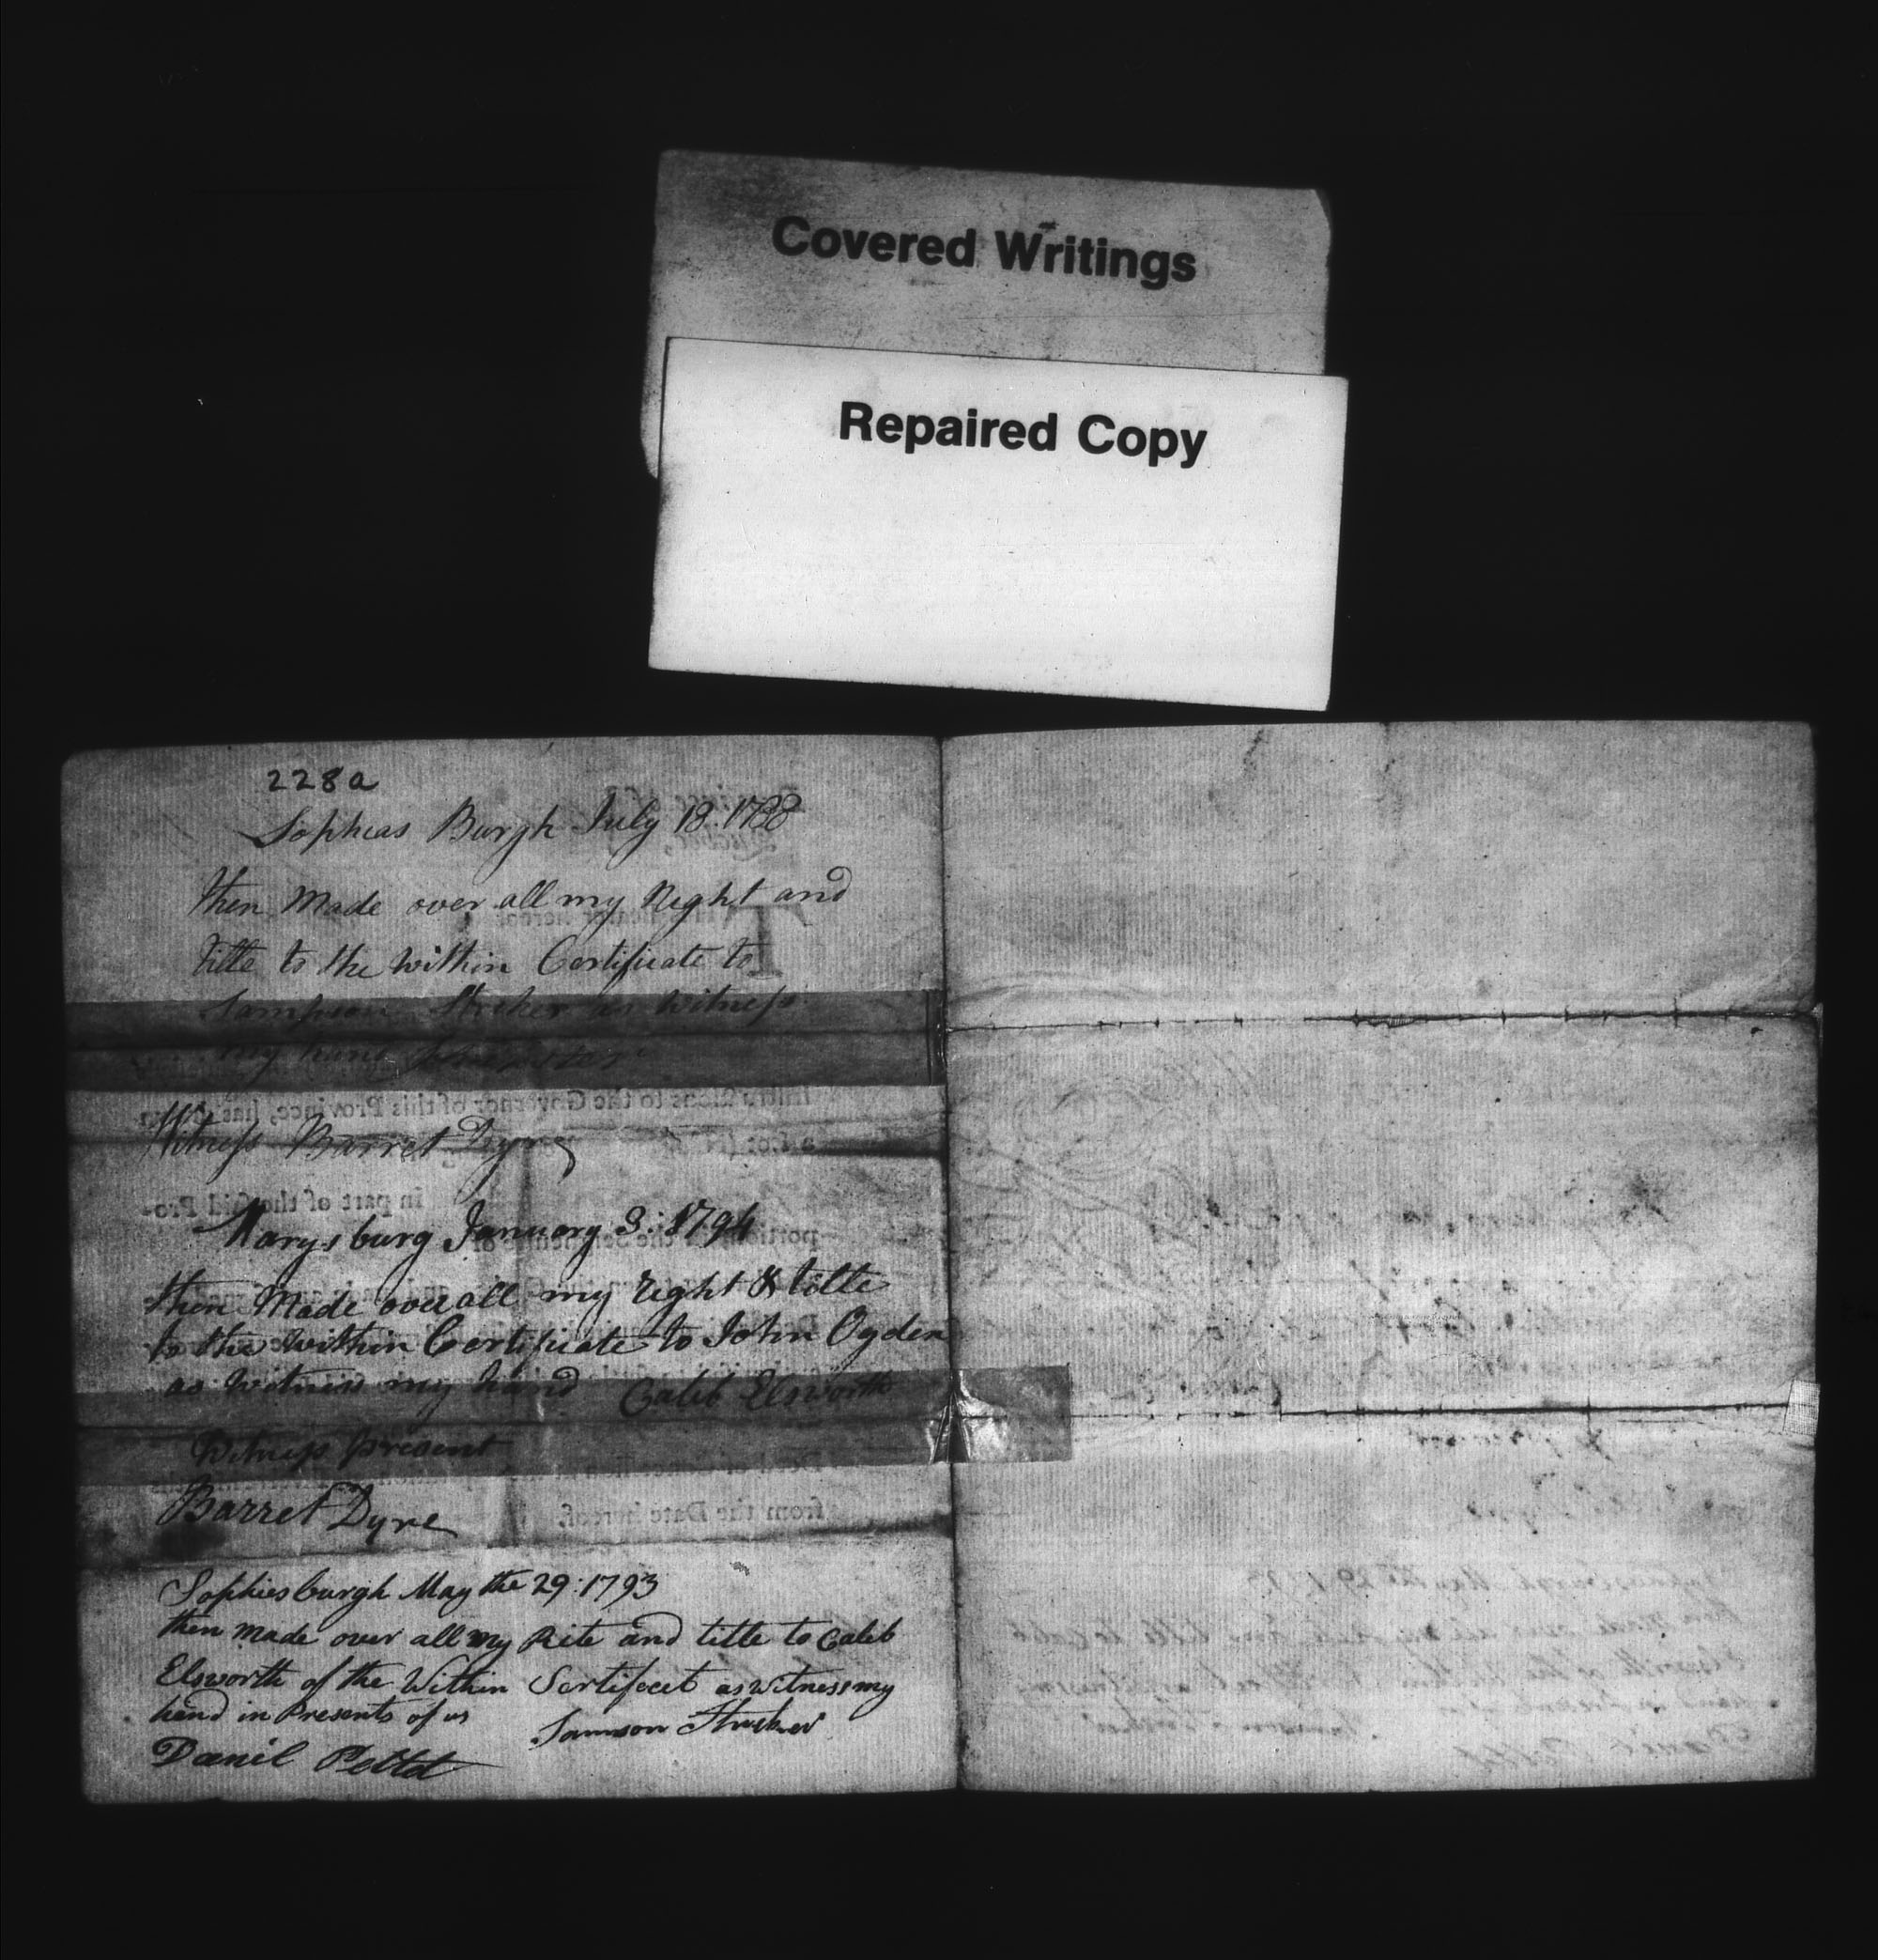 Covered Writings
Repaired Copy
228a
Sophias Burgh July 18. 1788
then Made over all my Right and
title to the within Certificate to
Sampson Striker as Witness
my hand
Witness Barret Dyre
Marysburg January 3: 1794
then Made over all my right & title
to the within Certificate to John Ogden
as Witness my hand Caleb Elsworth
Witness present
Barret Dyre
Sophiesburgh May the 29. 1793
then made over all my Rite and title to Caleb
Elsworth of the Within Sertifecet as witness my
hand in Presents of us Samson Striker
Daniel Pettet